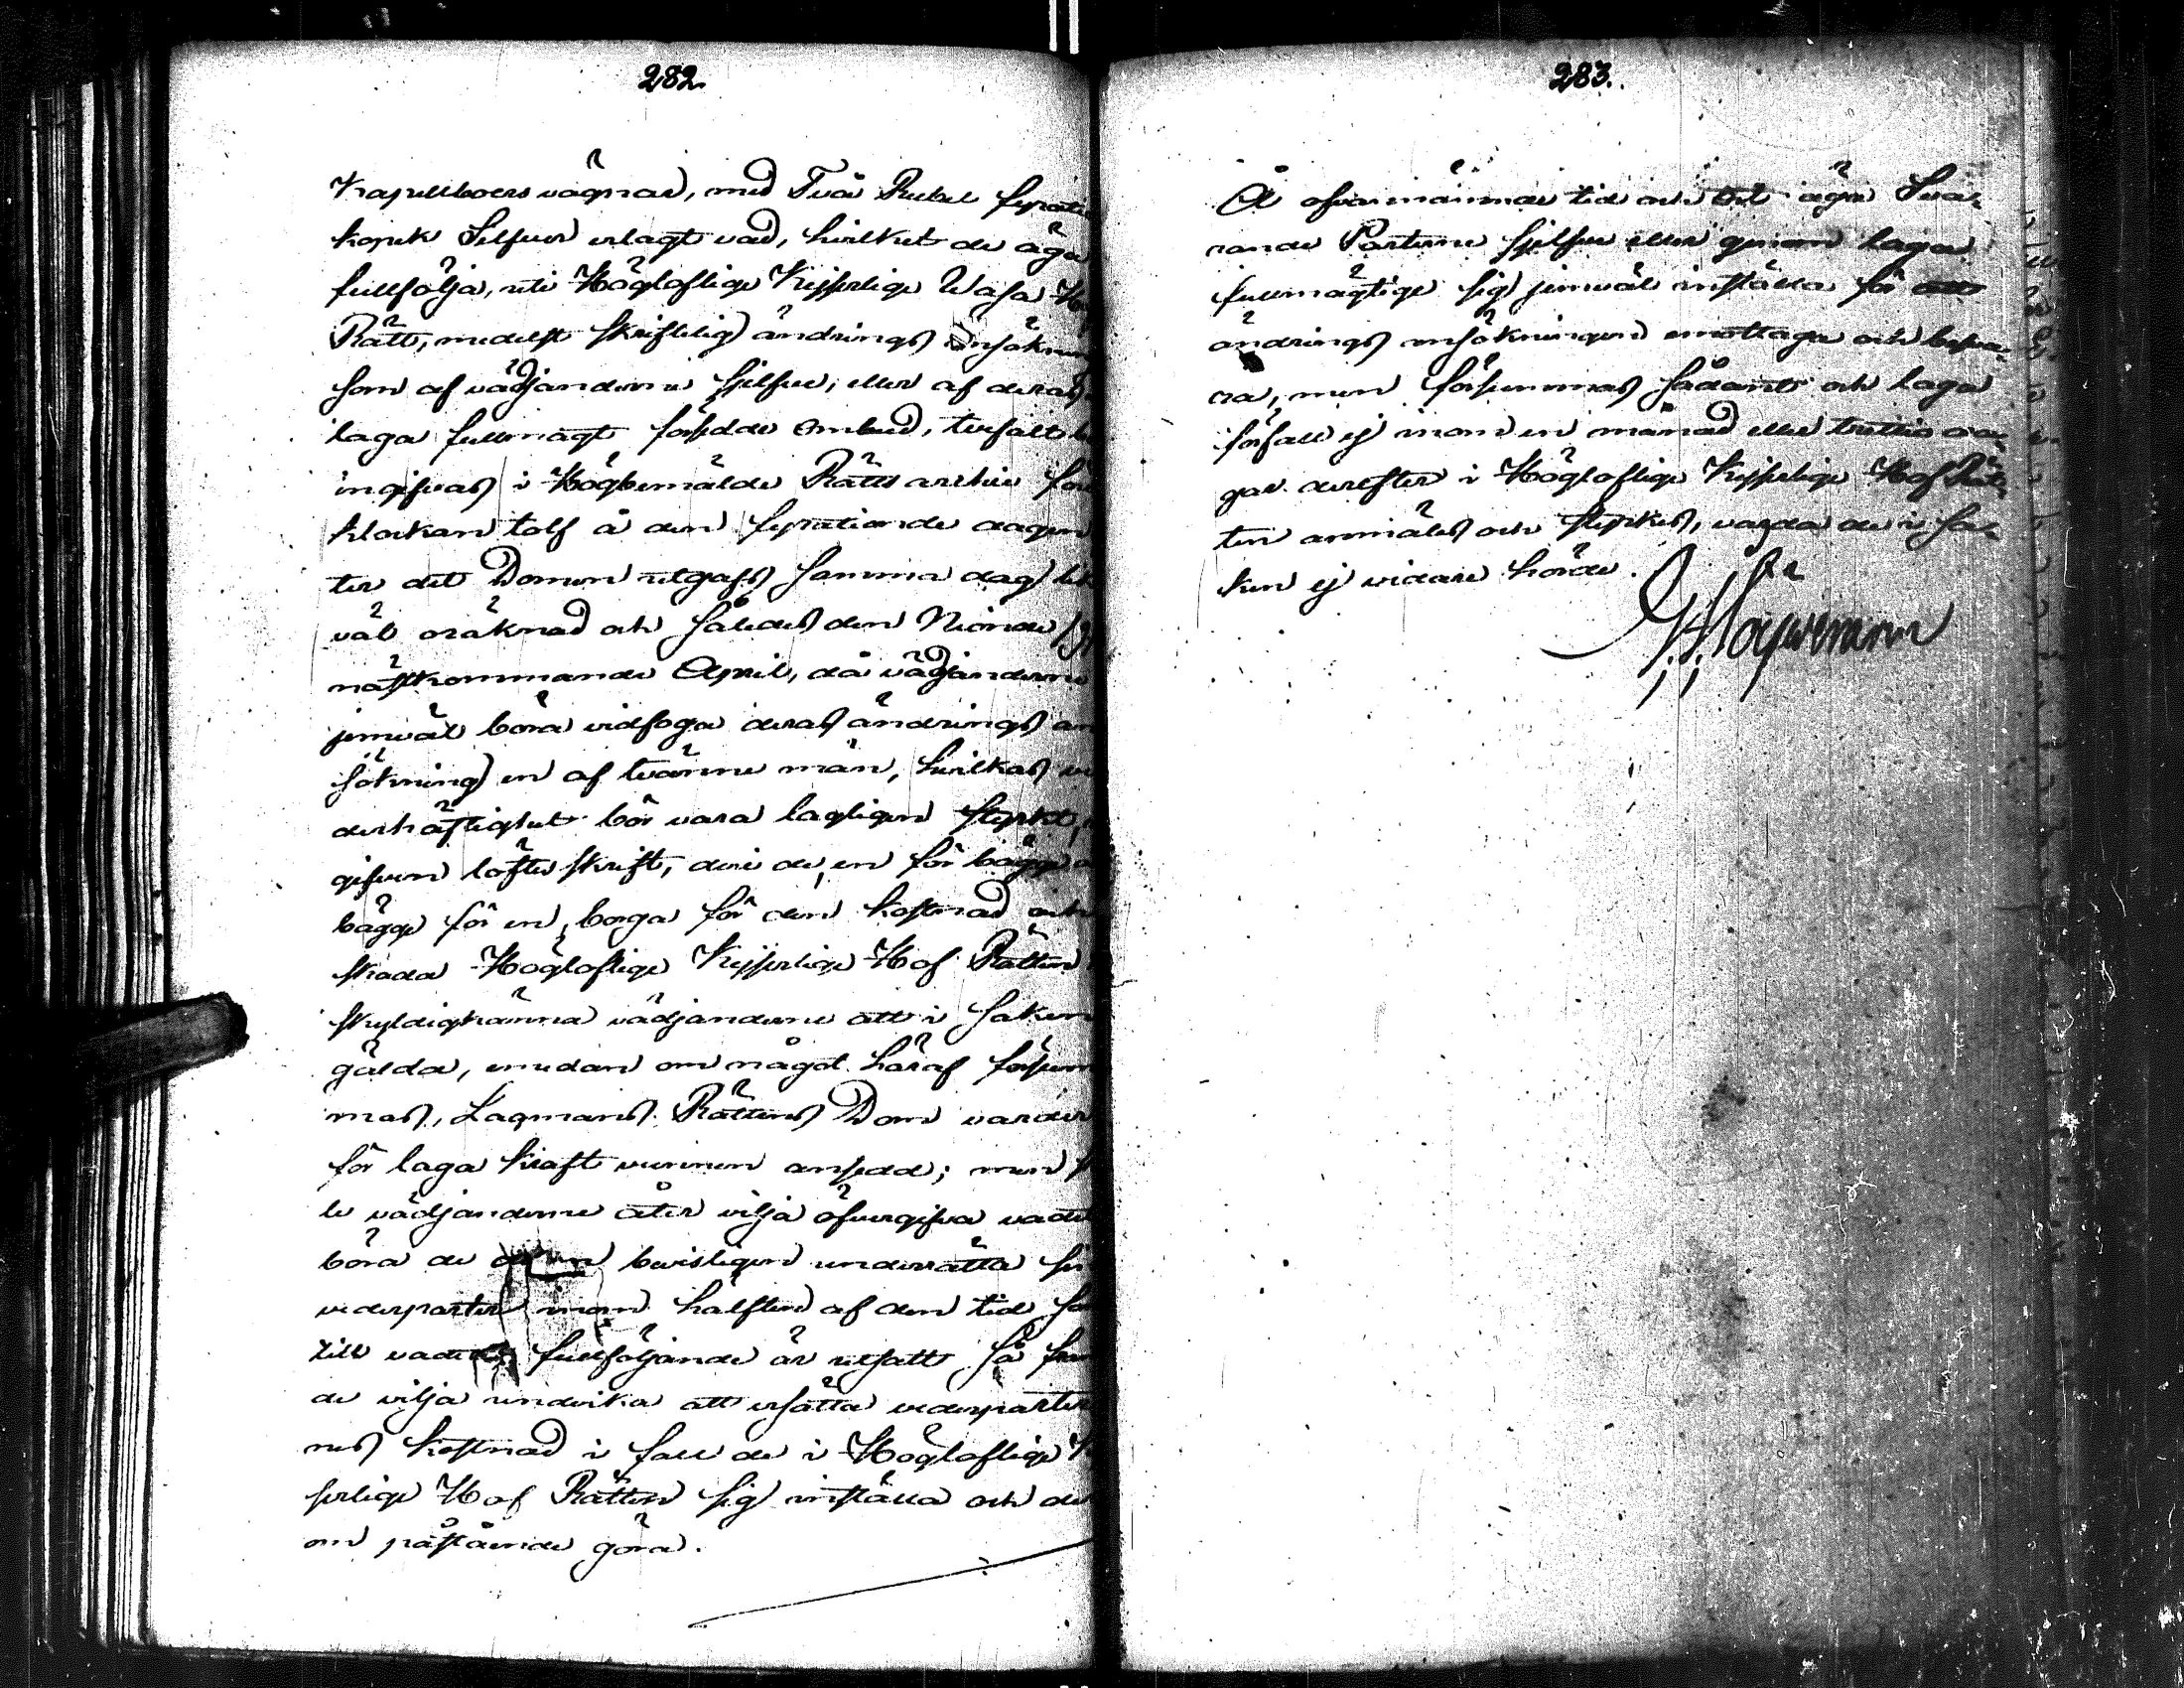 282.
Kapellboers vägnar, med Två Rubel fyratio
kopek Silfver erlagt vad, hvilket de äga
fullfölja, uti Högloflige Kejserlige Wasa
Rätt, medelst skriftelig ändrings ansöknin
som af vädjanderne sjelfve, eller af deras
laga fullmagt försedde ombud, tvefalt
ingifvas i Högbemälde Rätts archiv före
klockan tolf å den fyrationde dagen
ter det Domen utgafs samma dag lik
väl oräknad och således den Nionde
nästkommande April, då vädjanderne
jemväl böra vidfoga deras ändrings an
sökning en af tvänne män, hvilkas ve
derhäftighet bör vara lagligen styrkt,
gifven löftes skrift, deri de, en för bägge
bägge för en, borga för den kostnad och
skada Högloflige Kejserlige Hof Rätten
skyldigkänna vädjanderne att i saken
gälda, emedan om något häraf försum
mas, Lagmans Rättens Dom varder
för laga kraft vunnen ansedd; men
le vädjanderne åter vilja öfvergifva vadet
böra de bevisligen underrätta sin
vederparter inom hälften af den tid som
till vadets fullföljande är utsatt så fram
de vilja undvika att ersätta vederparter
nes kostnad i fall de i Högloflige
serlige Hof Rätten sig inställa och de
om påstående göra.
283.
Å ofvannämnde tid och ort äga Sva-
rande Parterne sjelfve eller genom laga
fullmägtige sig jemväl inställa för att
ändrings ansökningen emottaga och besva-
ra, men försummas sådant och laga
förfall ej inom en månad eller trettio da-
gar derefter i Höglofliga Kejserlige Hof Rät-
ten anmäles och styrkes, varda de i sa-
ken ej vidare hörde.